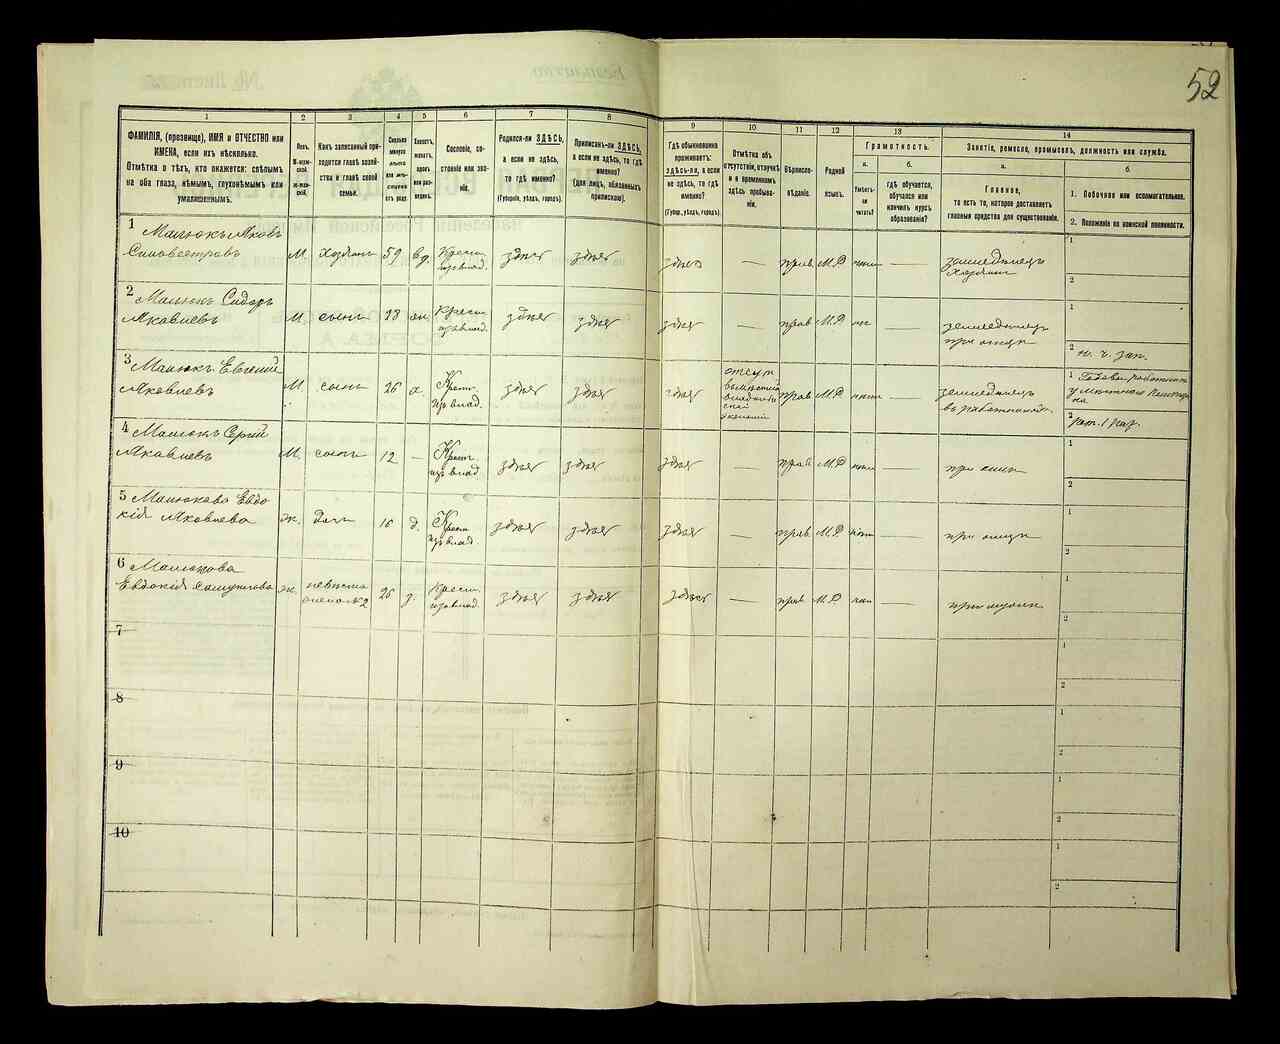 52
1
2
3
4
5
6
7
8
9
10
11
12
13
14
ФАМИЛІЯ, (прозвище), ИМЯ и ОТЧЕСТВО или
ИМЕНА, если ихъ нѣсколько.
Отмѣтка о тѣхъ, кто окажется: слѣпымъ
на оба глаза, нѣмымъ, глухонѣмымъ или
умалишеннымъ.
Полъ.
М-муж-
ской.
Ж-жен-
скій.
Какъ записанный при-
ходится главѣ хозяй-
ства и главѣ своей
семьи.
Сколько
минуло
лѣтъ
или мѣ-
сяцевъ
отъ роду.
Холостъ,
женатъ,
вдовъ
или раз-
веденъ.
Сословіе, со-
стояніе или зва-
ніе.
Родился-ли ЗДѢСЬ,
а если не здѣсь,
то гдѣ именно?
(Губернія, уѣздъ, городъ).
Приписанъ-ли ЗДѢСЬ,
а если не здѣсь, то гдѣ
именно?
(для лицъ, обязанныхъ
припискою).
Гдѣ обыкновенно
проживаетъ:
здѣсь-ли, а если
не здѣсь, то гдѣ
именно?
(Губер., уѣздъ, городъ).
Отмѣтка объ
отсутствіи, отлучкѣ
и о временномъ
здѣсь пребыва-
ніи.
Вѣроиспо-
вѣданіе.
Родной
языкъ.
Грамотность.
а.
Умѣетъ-
ли
читать?
б.
гдѣ обучается,
обучался или
кончилъ курсъ
образованія?
Занятіе, ремесло, промыселъ, должность или служба.
а.
Главное,
то есть то, которое доставляетъ
главныя средства для существованія.
б.
1. Побочное или вспомогательное.
2. Положеніе по воинской повинности.
1 Малюкъ Яковъ
Сильвестровъ
М. Хозяинъ 59 вд. Крест. здѣсь здѣсь
здѣсь — прав. М.Р — земледѣлецъ
хозяинъ
1
2
2 Малюкъ Сидоръ
Яковлевъ
М. сынъ Крест. здѣсь здѣсь
здѣсь — прав. М.Р — земледѣлецъ
при отцѣ
1
2
3 Малюкъ Евгеній
Яковлевъ
М. сынъ 26 х. Крест. здѣсь здѣсь
здѣсь прав. М.Р — земледѣлецъ
1
2
4 Малюкъ Сергій
Яковлевъ
М. сынъ 12 — Крест. здѣсь здѣсь
здѣсь — прав. М.Р — при отцѣ
1
2
5 Малюкова Евдо
кія Яковлева
ж. дочь 16 д. Крест. здѣсь здѣсь
здѣсь — прав. М.Р — при отцѣ
1
2
6 Малюкова
Евдокія
ж. невѣстка 26 Крест. здѣсь здѣсь
здѣсь — прав. М.Р — при мужѣ
1
2
7
1
2
8
1
2
9
1
2
10
1
2